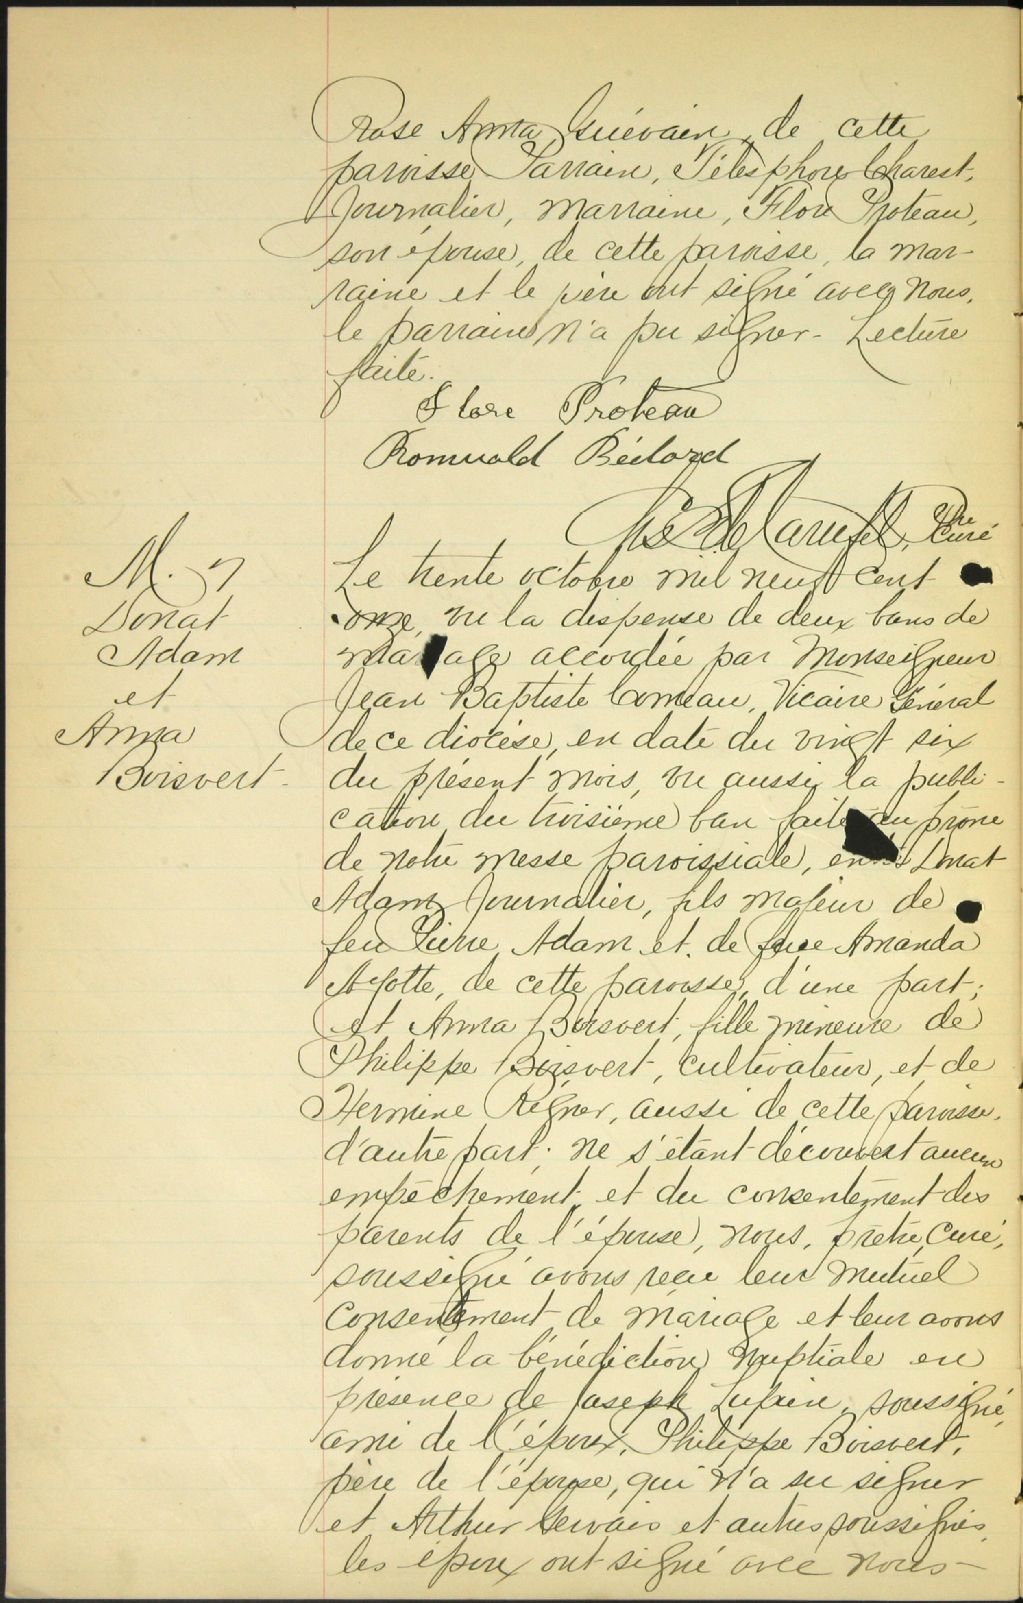 Rose Anna Guévain, de cette
paroisse, Parrain, Télesphore Charest,
Journalier, Marraine, Flore Proteau,
son épouse, de cette paroisse, la mar-
raine et le père ont signé avec Nous,
le parrain n'a pu signer - Lecture
faite.
Flore Proteau
Romuald Béland
Ptre
Curé
M. 7
Donat
Adam
et
Anna
Boisvert -
Le trente octobre mil neuf cent
onze, vu la dispense de deux bans de
mariage accordée par Monseigneur
Jean Baptiste Comeau, Vicaire Général
de ce diocèse, en date du vingt six
du présent mois, vu aussi la publi-
cation du troisième ban faite au prône
de notre messe paroissiale, entre Donat
Adam, Journalier, fils majeur de
feu Pierre Adam et de feue Amanda
Ayotte, de cette paroisse, d'une part;
et Anna Boisvert, fille mineure de
Philippe Boisvert, cultivateur, et de
Hermine aussi de cette paroisse,
d'autre part; ne s'étant découvert aucun
empêchement, et du consentement des
parents de l'épouse, nous, prêtre, Curé,
soussigné avons reçu leur mutuel
consentement de mariage et leur avons
donné la bénédiction nuptiale en
présence de Joseph soussigné,
ami de l'époux, Philippe Boisvert,
père de l'épouse, qui n'a su signer
et Arthur Gervais et autres soussignés,
les époux ont signé avec nous -